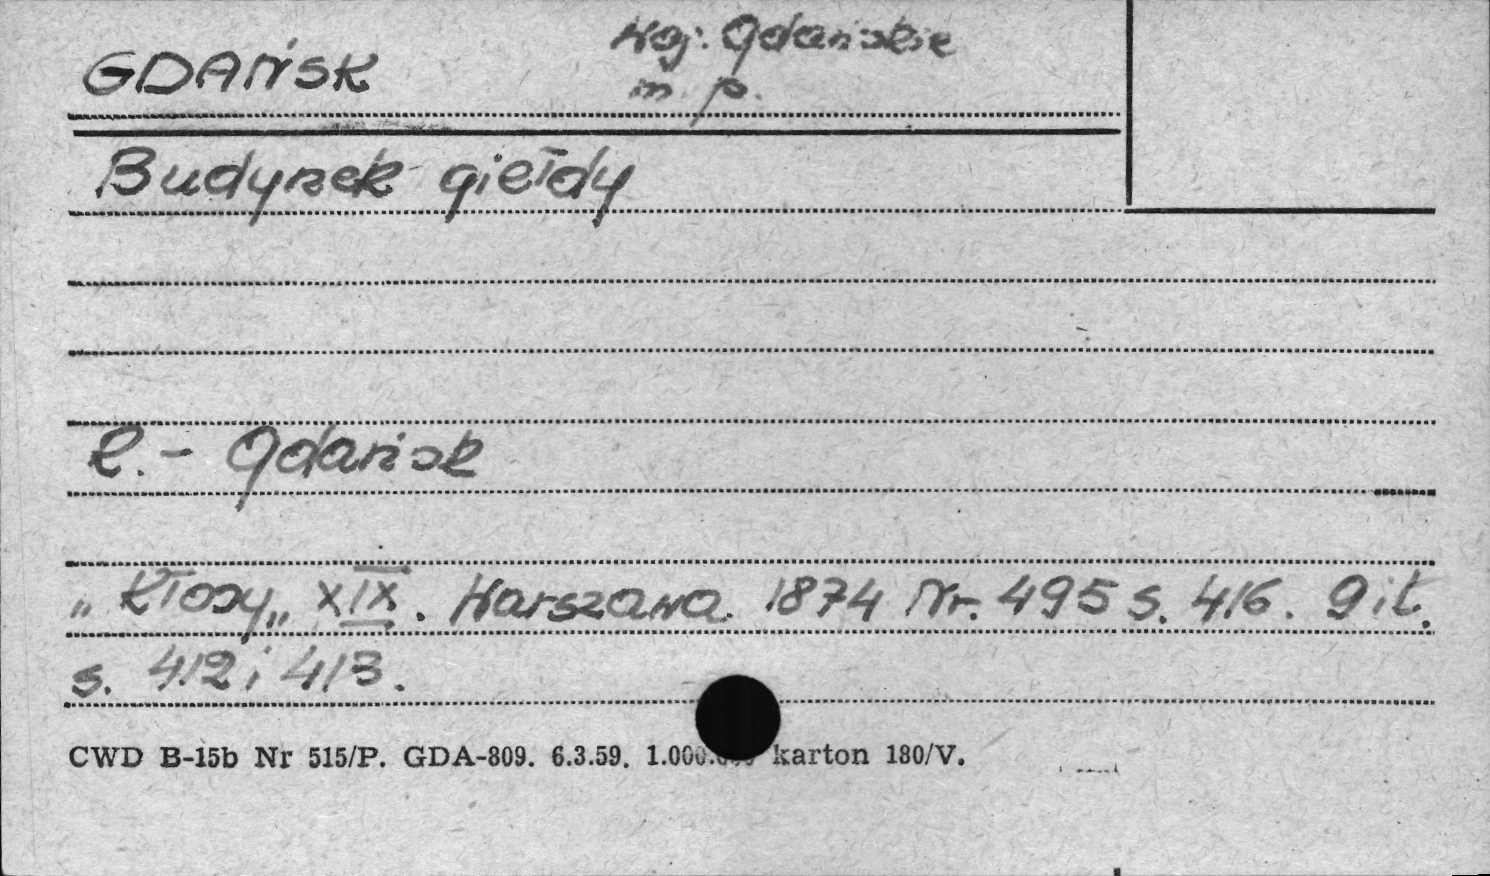 GDAŃSK
Woj. Gdańskie
m. p.
Budynek giełdy
R. - Gdańsk
„Kłosy„ XIX. Warszawa. 1874 Nr. 495 s. 416. git.
s. 412 i 413.
CWD B-15b Nr 515/P. GDA-809. 6.3.59. 1.000.000 karton 180/V.